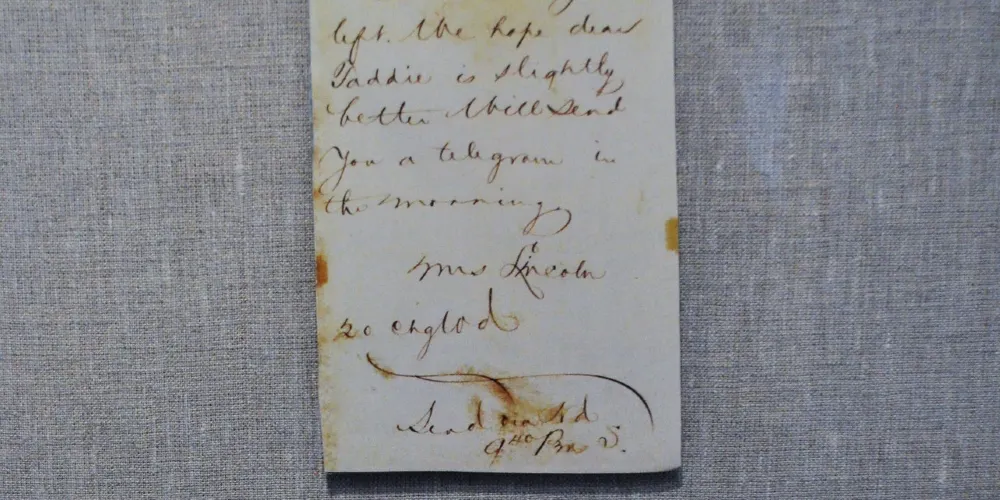 left. We hope dear
Taddie is slightly
better Will send
You a telegram in
the morning
Mrs Lincoln
20
Send